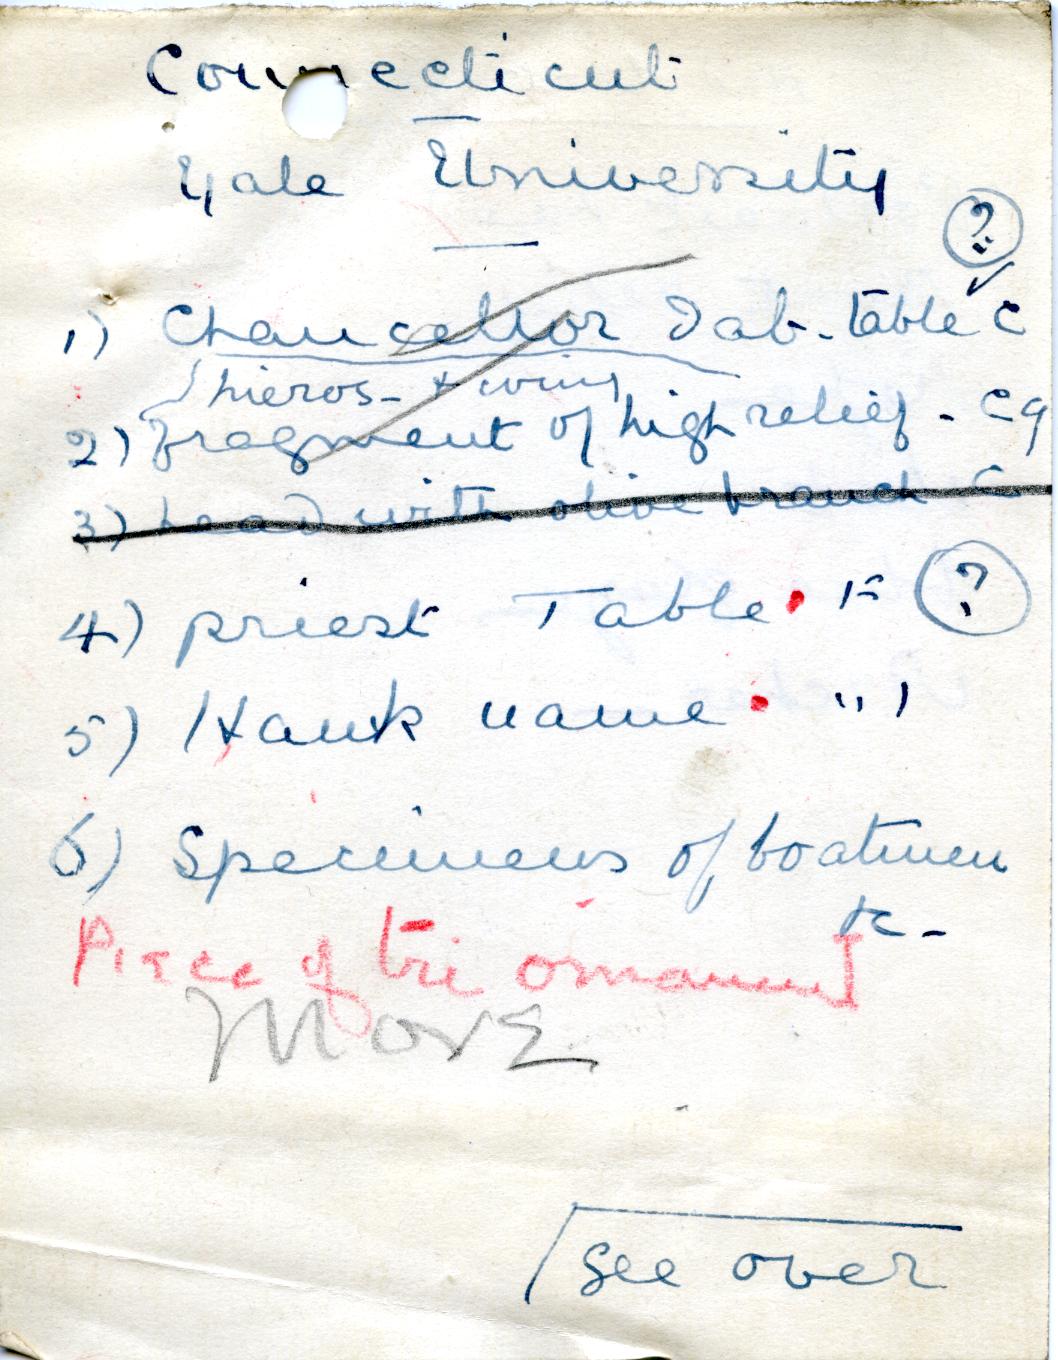 Connecticut
Yale University
?
1) Chancellor Iab - table C
hieros - + wing
2) Fragment of high relief -
3) head with olive branch
4) priest Table • 15 ?
5) Hawk name • " )
6) Specimens of boatmen
tc -
Piece of tri ornament
MORE
see over